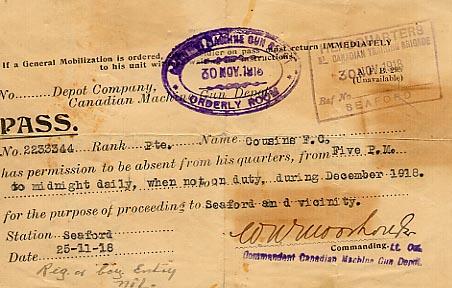 If a General Mobilization is ordered, soldier on pass must return IMMEDIATELY
to his unit instructions.
MACHINE GUN
ORDERLY ROOM
HEADQUARTERS
CANADIAN TRAINING BRIGADE
30 NOV. 1918
SEAFORD
A.F. B. 295
(Unavailable)
No. Depot Company,
Canadian Machine Gun Depot
PASS.
No. 2233344 Rank Pte. Name Cousins F.G,
has permission to be absent from his quarters, from Five P.M.
to midnight daily, when not on duty, during December 1918.
for the purpose of proceeding to Seaford and vicinity.
Station Seaford
Date 25-11-18
Commanding. Lt. Col.
Commandant Canadian Machine Gun Depot.
Reg. or Entry